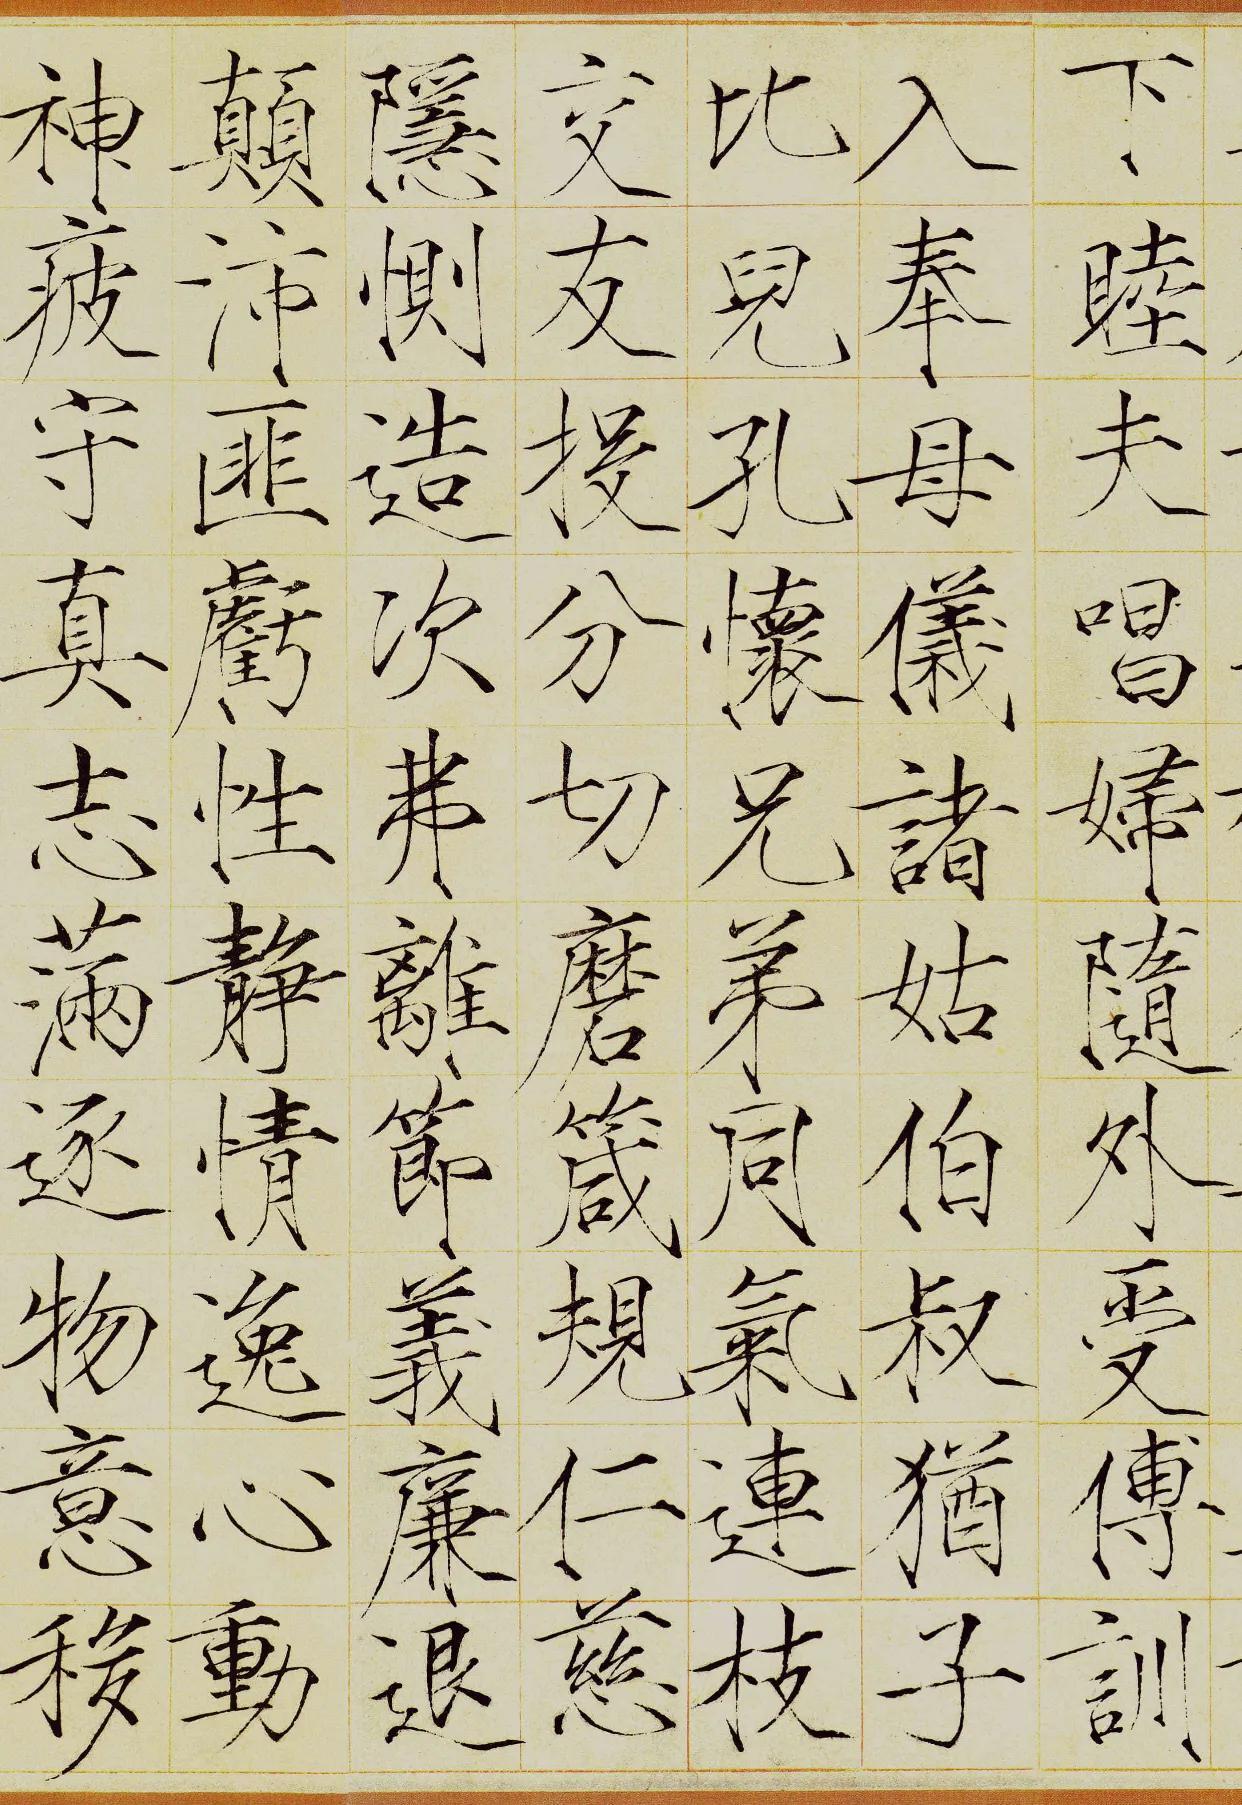 下睦夫唱婦隨外受傅訓
入奉母儀諸姑伯叔猶子
比兒孔懷兄弟同氣連枝
交友投分切磨箴規仁慈
隱惻造次弗離節義廉退
顛沛匪虧性靜情逸心動
神疲守真志滿逐物意移